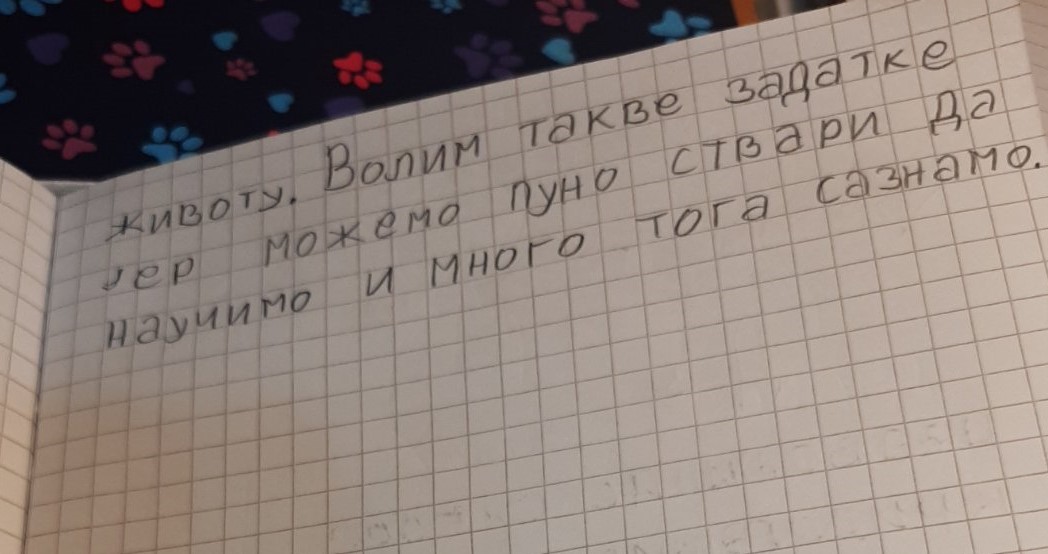 животу. Волим такве задатке
јер можемо пуно ствари да
научимо и много тога сазнамо.